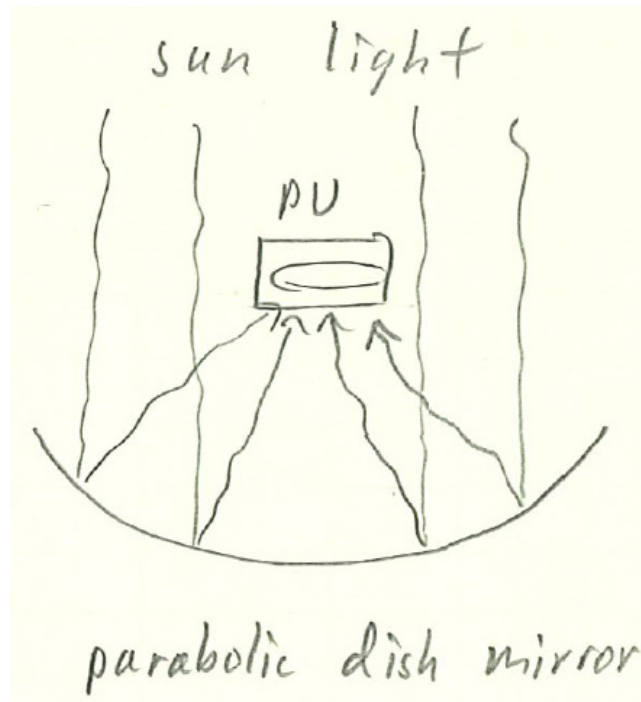 sun light
PV
parabolic dish mirror